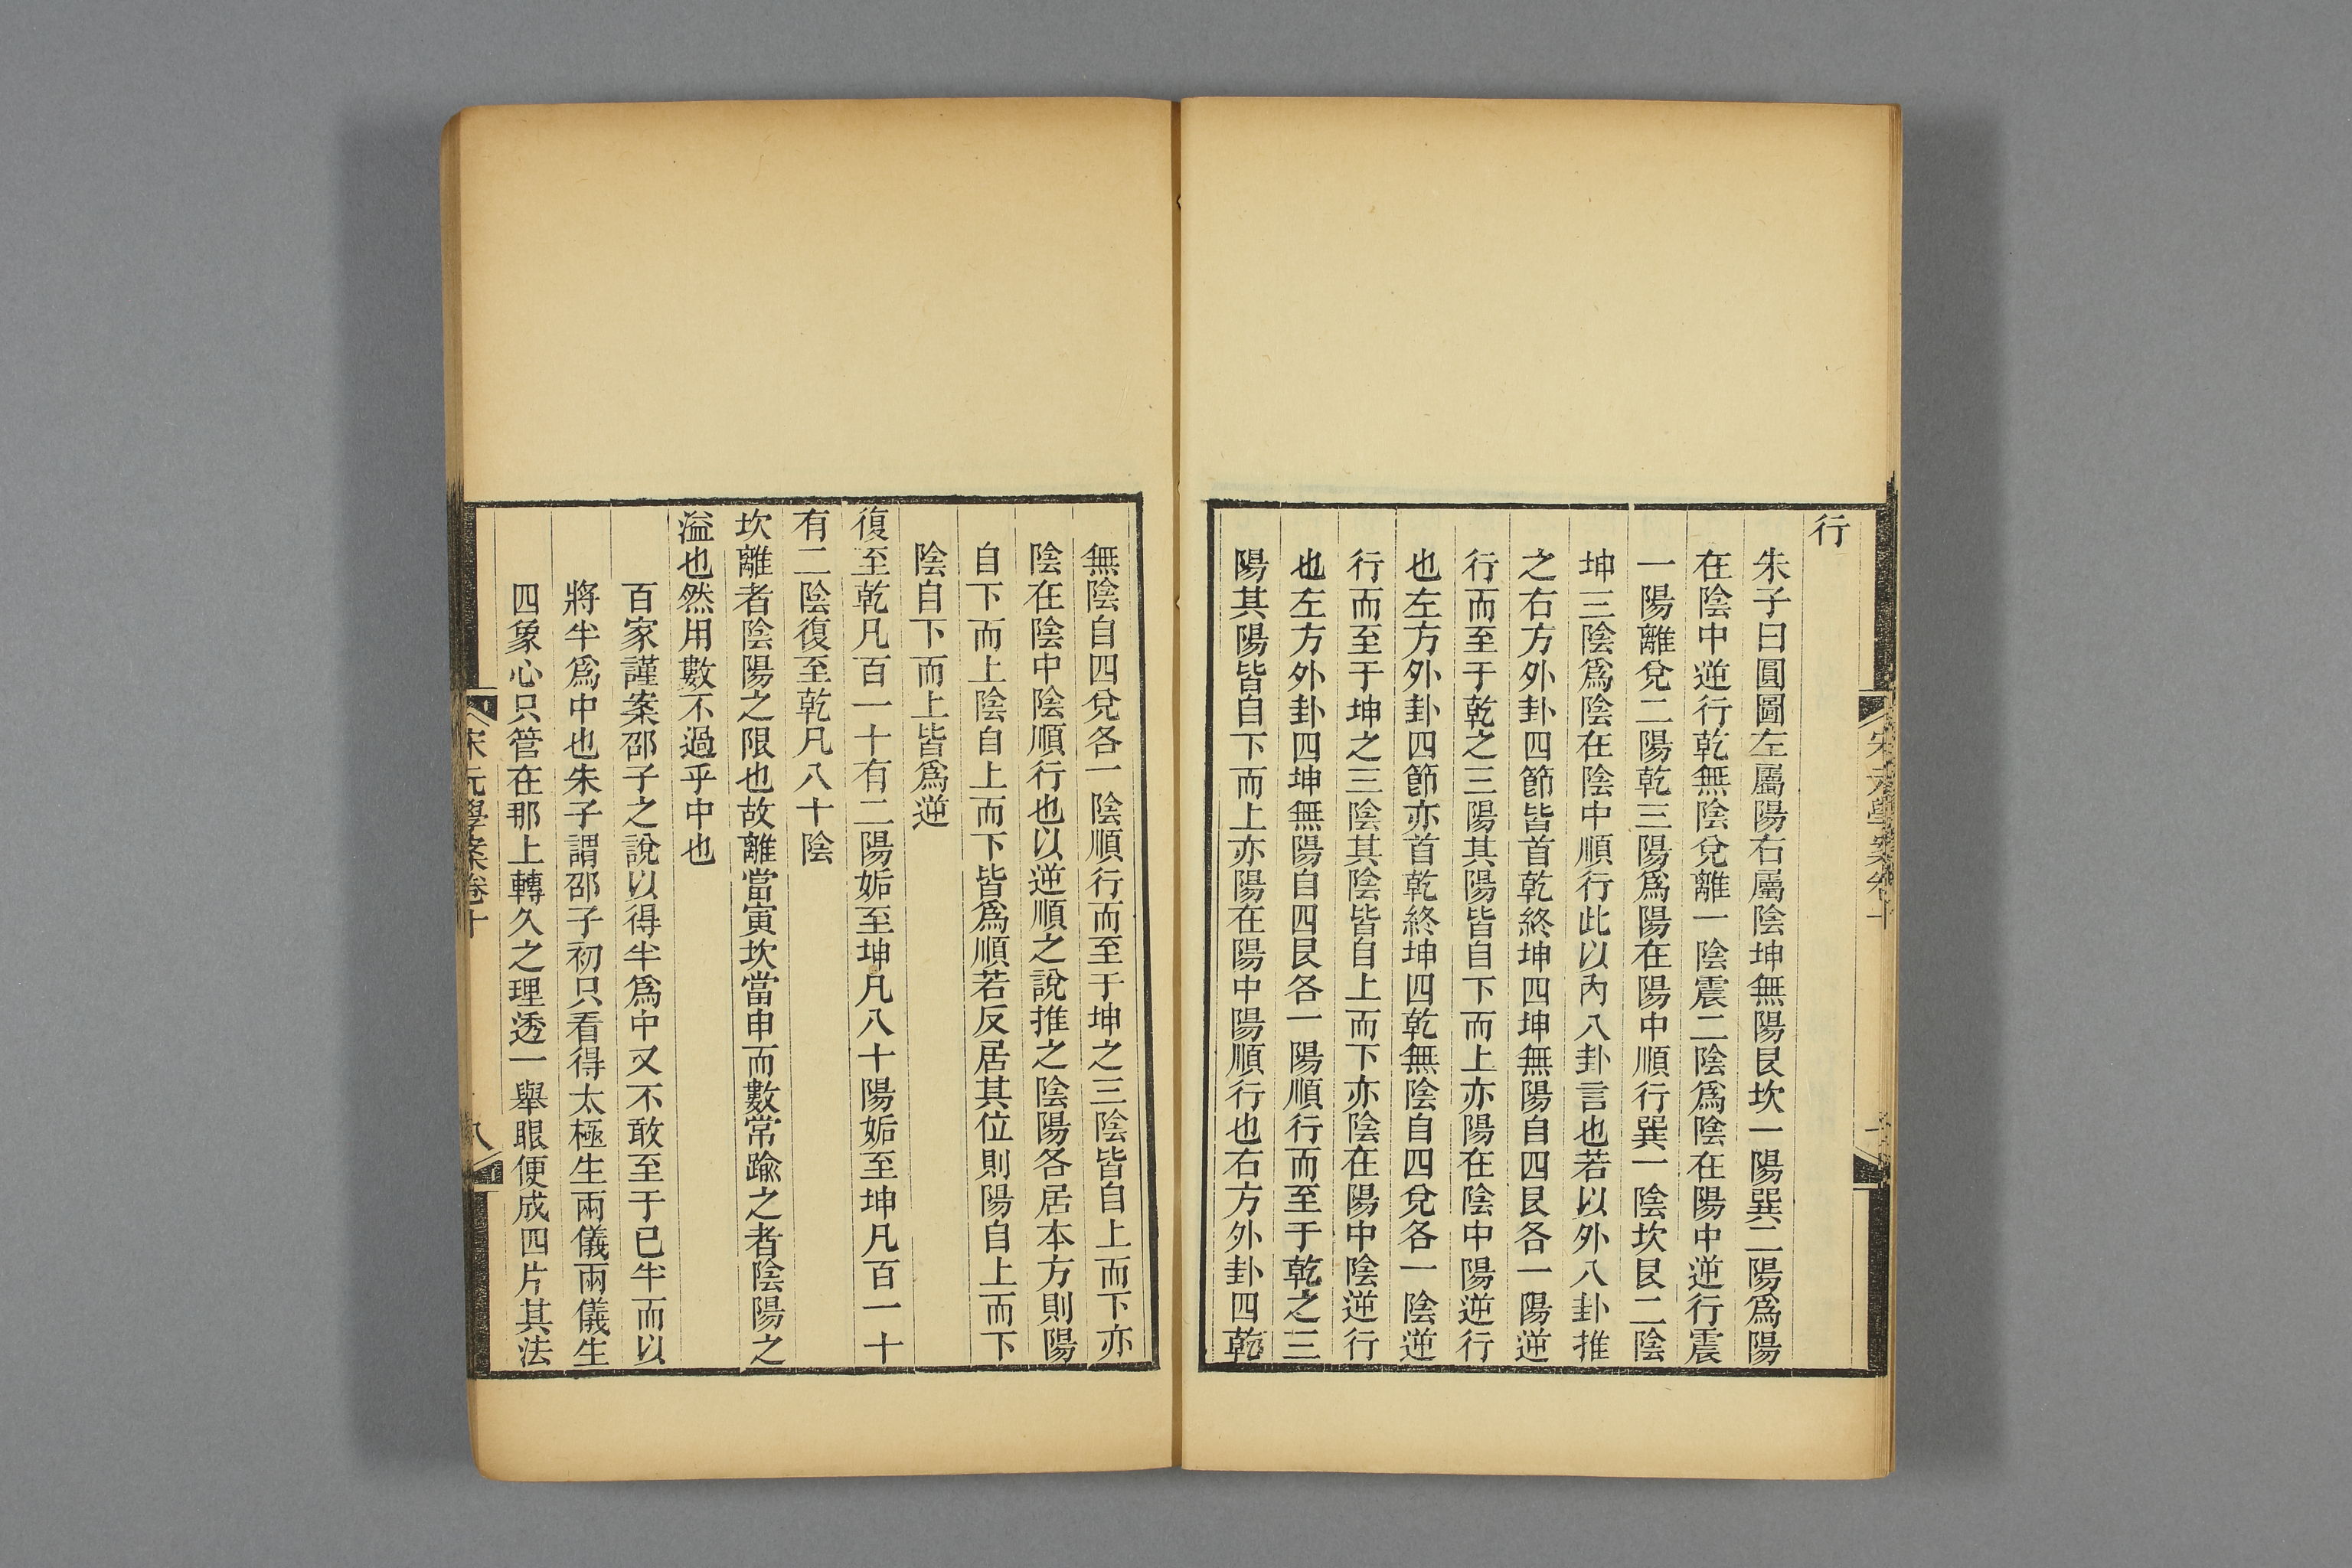 行
朱子曰圓圖左屬陽右屬陰坤無陽艮坎一陽巽二陽爲陽
在陰中逆行乾無陰兌離一陰震二陰爲陰在陽中逆行震
一陽離兌二陽乾三陽爲陽在陽中順行巽一陰坎艮二陰
坤三陰爲陰在陰中順行此以內八卦言也若以外八卦推
之右方外卦四節皆首乾終坤四坤無陽自四艮各一陽逆
行而至于乾之三陽其陽皆自下而上亦陽在陰中陽逆行
也左方外卦四節亦首乾終坤四乾無陰自四兌各一陰逆
行而至于坤之三陰其陰皆自上而下亦陰在陽中陰逆行
也左方外卦四坤無陽自四艮各一陽順行而至于乾之三
陽其陽皆自下而上亦陽在陽中陽順行也右方外卦四乾
無陰自四兌各一陰順行而至于坤之三陰皆自上而下亦
陰在陰中陰順行也以逆順之說推之陰陽各居本方則陽
自下而上陰自上而下皆爲順若反居其位則陽自上而下
陰自下而上皆爲逆
復至乾凡百一十有二陽姤至坤凡八十陽姤至坤凡百一十
有二陰復至乾凡八十陰
坎離者陰陽之限也故離當寅坎當申而數常踰之者陰陽之
溢也然用數不過乎中也
百家謹案邵子之說以得半爲中又不敢至于已半而以
將半爲中也朱子謂邵子初只看得太極生兩儀兩儀生
四象心只管在那上轉久之理透一舉眼便成四片其法
宋元學案卷十
八